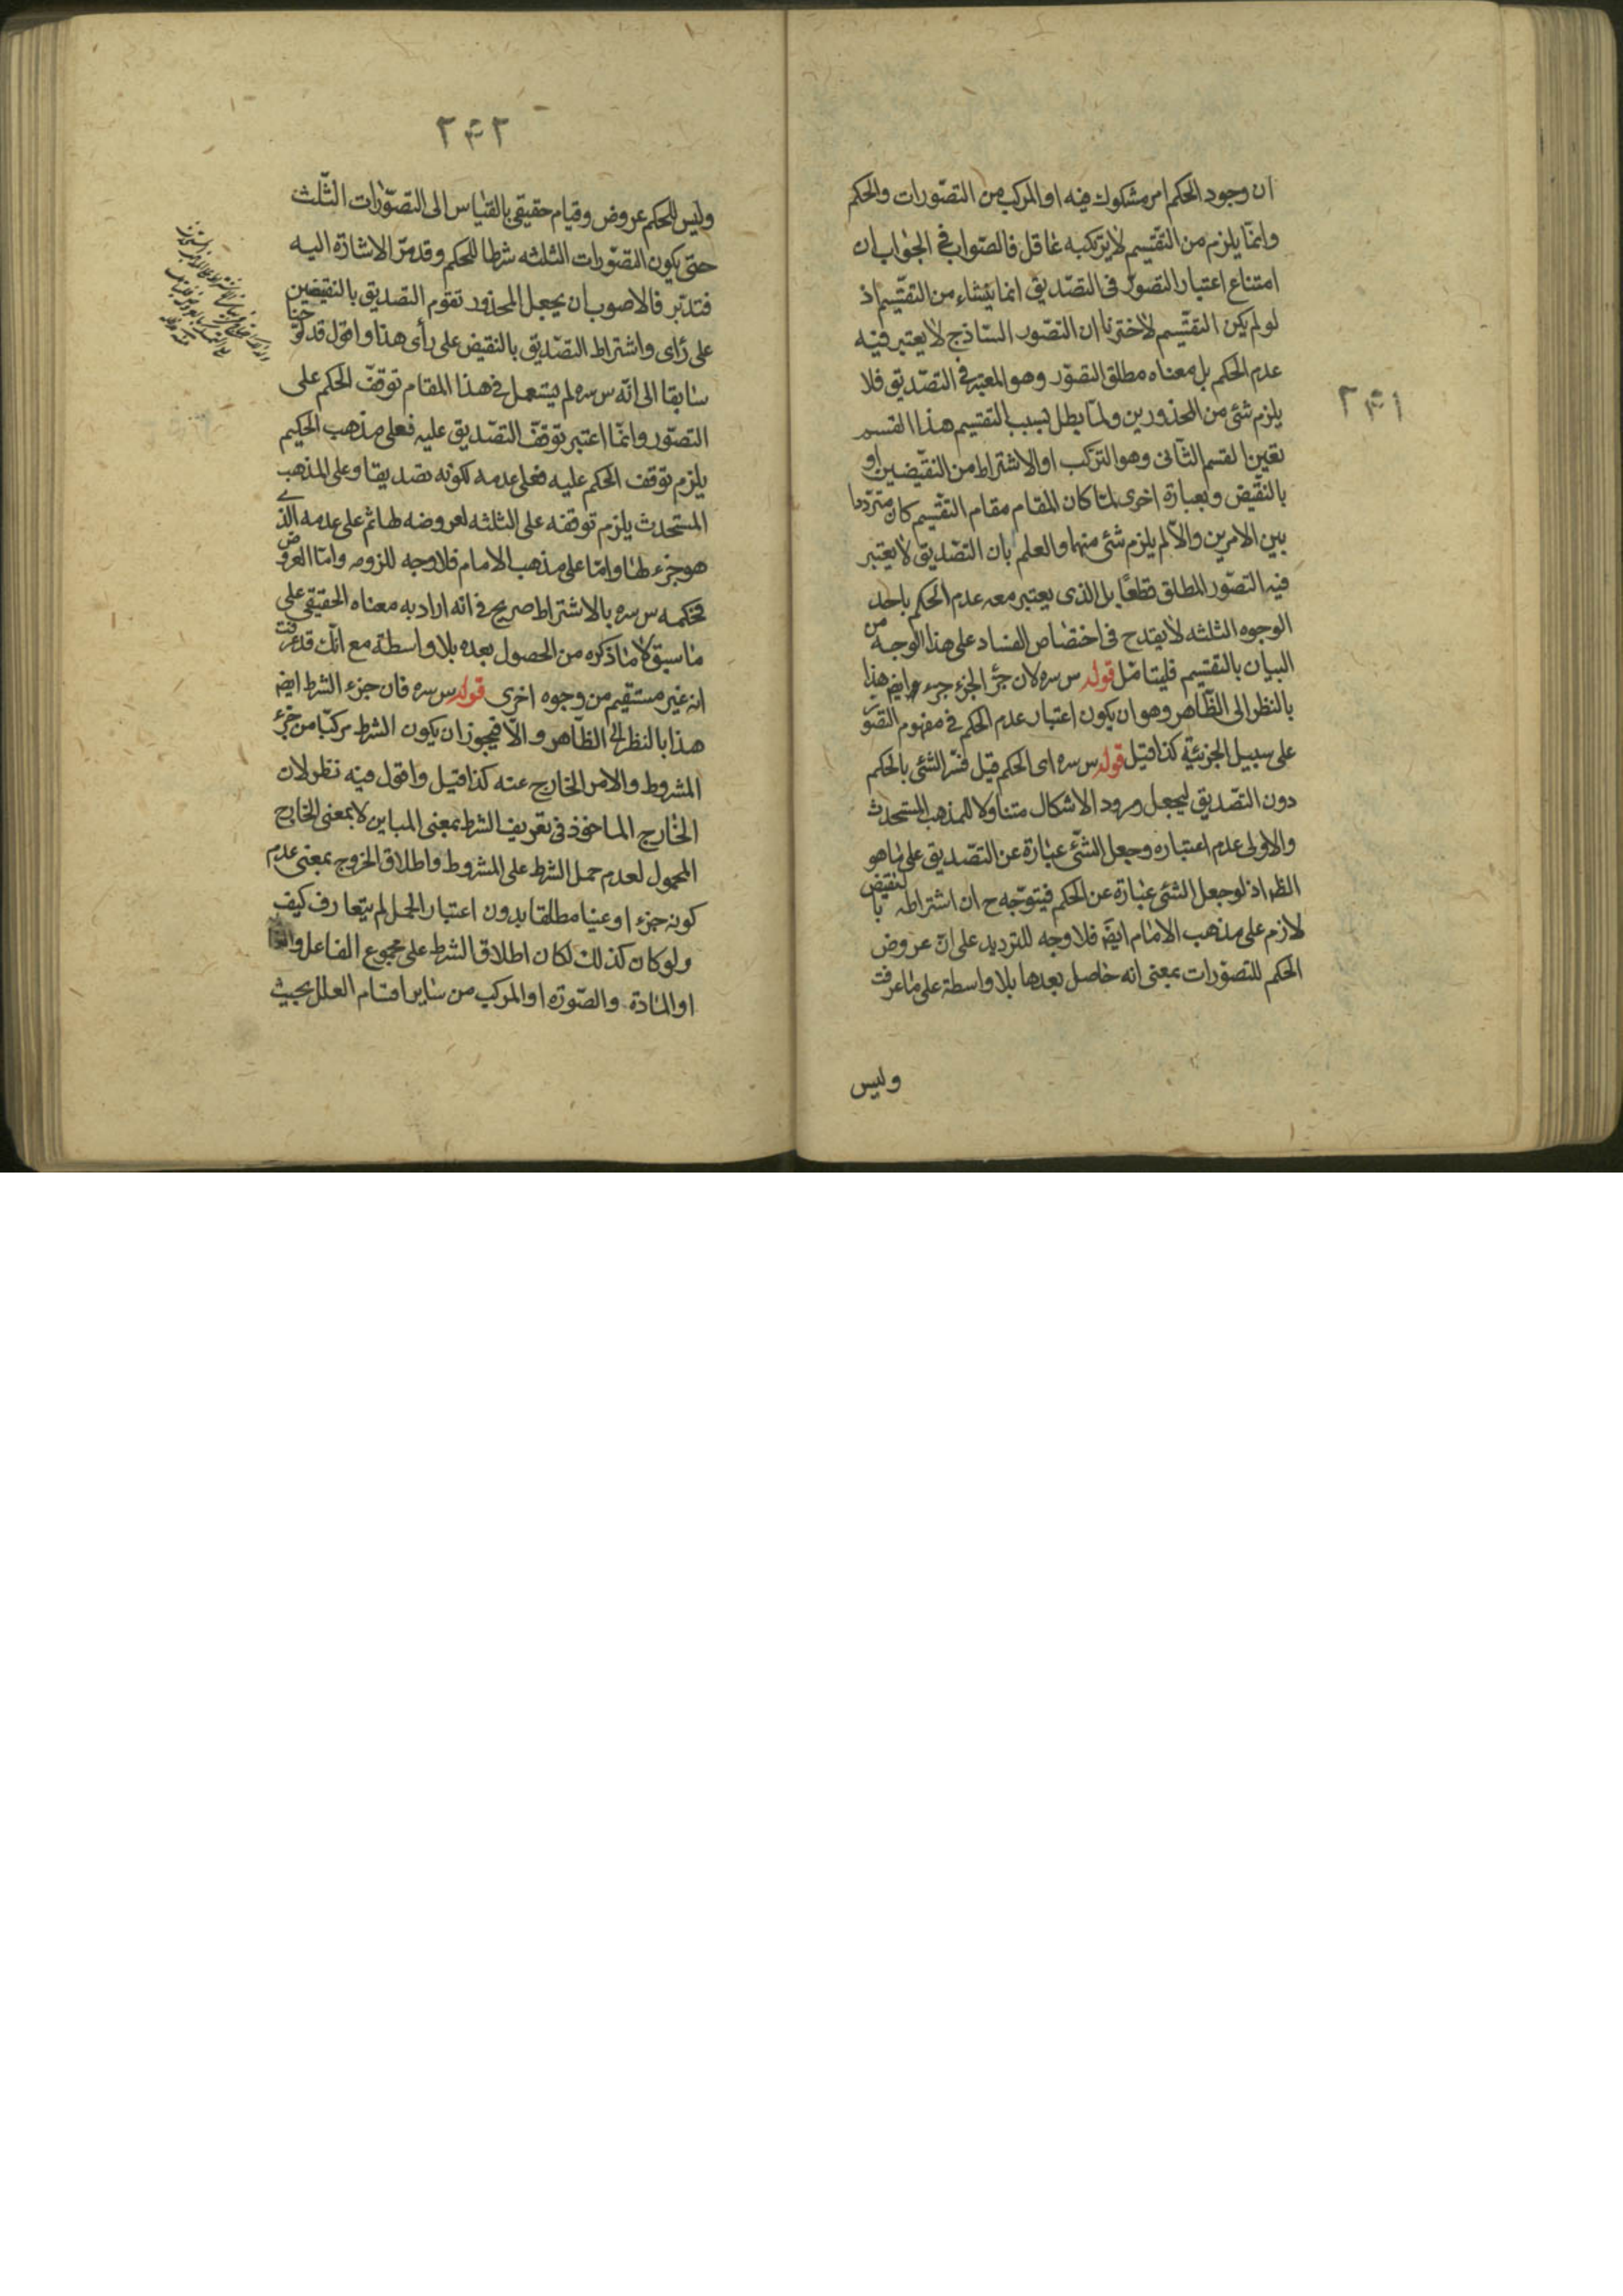 ٢٤١
ان وجود الحكم امر مشكوك فيه او المركب من التصورات والحكم
وانما يلزم من التقسيم لا يرتكبه عاقل فالصواب في الجواب ان
امتناع اعتبار التصور في التصديق انما ينشاء من التقسيم اذ
لو لم يكن التقسيم لاخترنا ان التصور الساذج لا يعتبر فيه
عدم الحكم بل معناه مطلق التصور وهو المعتبر في التصديق فلا
يلزم شئ من المحذورين ولما بطل بسبب التقسيم هذا القسم
تعين القسم الثانى وهو التركب او الاشتراط من النقيضين او
بالنقيض وبعبارة اخرى لما كان المقام مقام التقسيم كان مترددا
بين الامرين والا لم يلزم شئ منهما والعلم بان التصديق لا يعتبر
فيه التصور المطلق قطعًا بل الذى يعتبر معه عدم الحكم باحد
الوجوه الثلثه لا يقدح فى اختصاص الفساد على هذا الوجه من
البيان بالتقسيم فليتامل قوله س سره لان جزء الجزء جزء ايضا هذا
بالنظر الى الظاهر وهو ان يكون اعتبار عدم الحكم في مفهوم التصور
على سبيل الجزئية كذا قيل قوله س سره اى الحكم قيل فسر الشئ بالحكم
دون التصديق ليجعل ورود الاشكال متناولا للمذهب المستحدث
والاولى عدم اعتباره وجعل الشئ عبارة عن التصديق على ما هو
الظ اذ لو جعل الشئ عبارة عن الحكم فيتوجه ح ان اشتراطه بالنقيض
لازم على مذهب الامام ايضا فلا وجه للترديد على ان عروض
الحكم للتصورات بمعنى انه حاصل بعدها بلا واسطة على ما عرفت
وليس
٢٤٢
وليس للحكم عروض وقيام حقيقى بالقياس الى التصورات الثلث
حتى يكون التصورات الثلثه شرطا للحكم وقد مر الاشارة اليه
فتدبر فالاصوب ان يجعل المحذور تقوم التصديق بالنقيضين
على رأى واشتراط التصديق بالنقيض على رأى هذا واقول قد لوحنا
سابقا الى انه س سره لم يستعمل في هذا المقام توقف الحكم على
التصور وانما اعتبر توقف التصديق عليه فعلى مذهب الحكيم
يلزم توقف الحكم عليه فعلى عدمه لكونه تصديقا وعلى المذهب
المستحدث يلزم توقفه على الثلثه لعروضه لها ثم على عدمه الذى
هو جزء لها واما على مذهب الامام فلا وجه للزومه واما العروض
فحكمه س سره بالاشتراط صريح في انه اراد به معناه الحقيقى على
ما سبق لا ما ذكره من الحصول بعده بلا واسطة مع انك قد عرفت
انه غير مستقيم من وجوه اخرى قوله س سره فان جزء الشرط ايضا
هذا بالنظر الى الظاهر والا فيجوز ان يكون الشرط مركبا من جزء
المشروط والامر الخارج عنه كذا قيل واقول فيه نظر لان
الخارج الماخوذ فى تعريف الشرط بمعنى المباين لا بمعنى الخارج
المحمول لعدم حمل الشرط على المشروط واطلاق الخروج بمعنى عدم
كونه جزء او عينا مطلقا بدون اعتبار الحمل لم يتعارف كيف
ولو كان كذلك لكان اطلاق الشرط على مجموع الفاعل
او المادة والصورة او المركب من ساير اقسام العلل بحيث